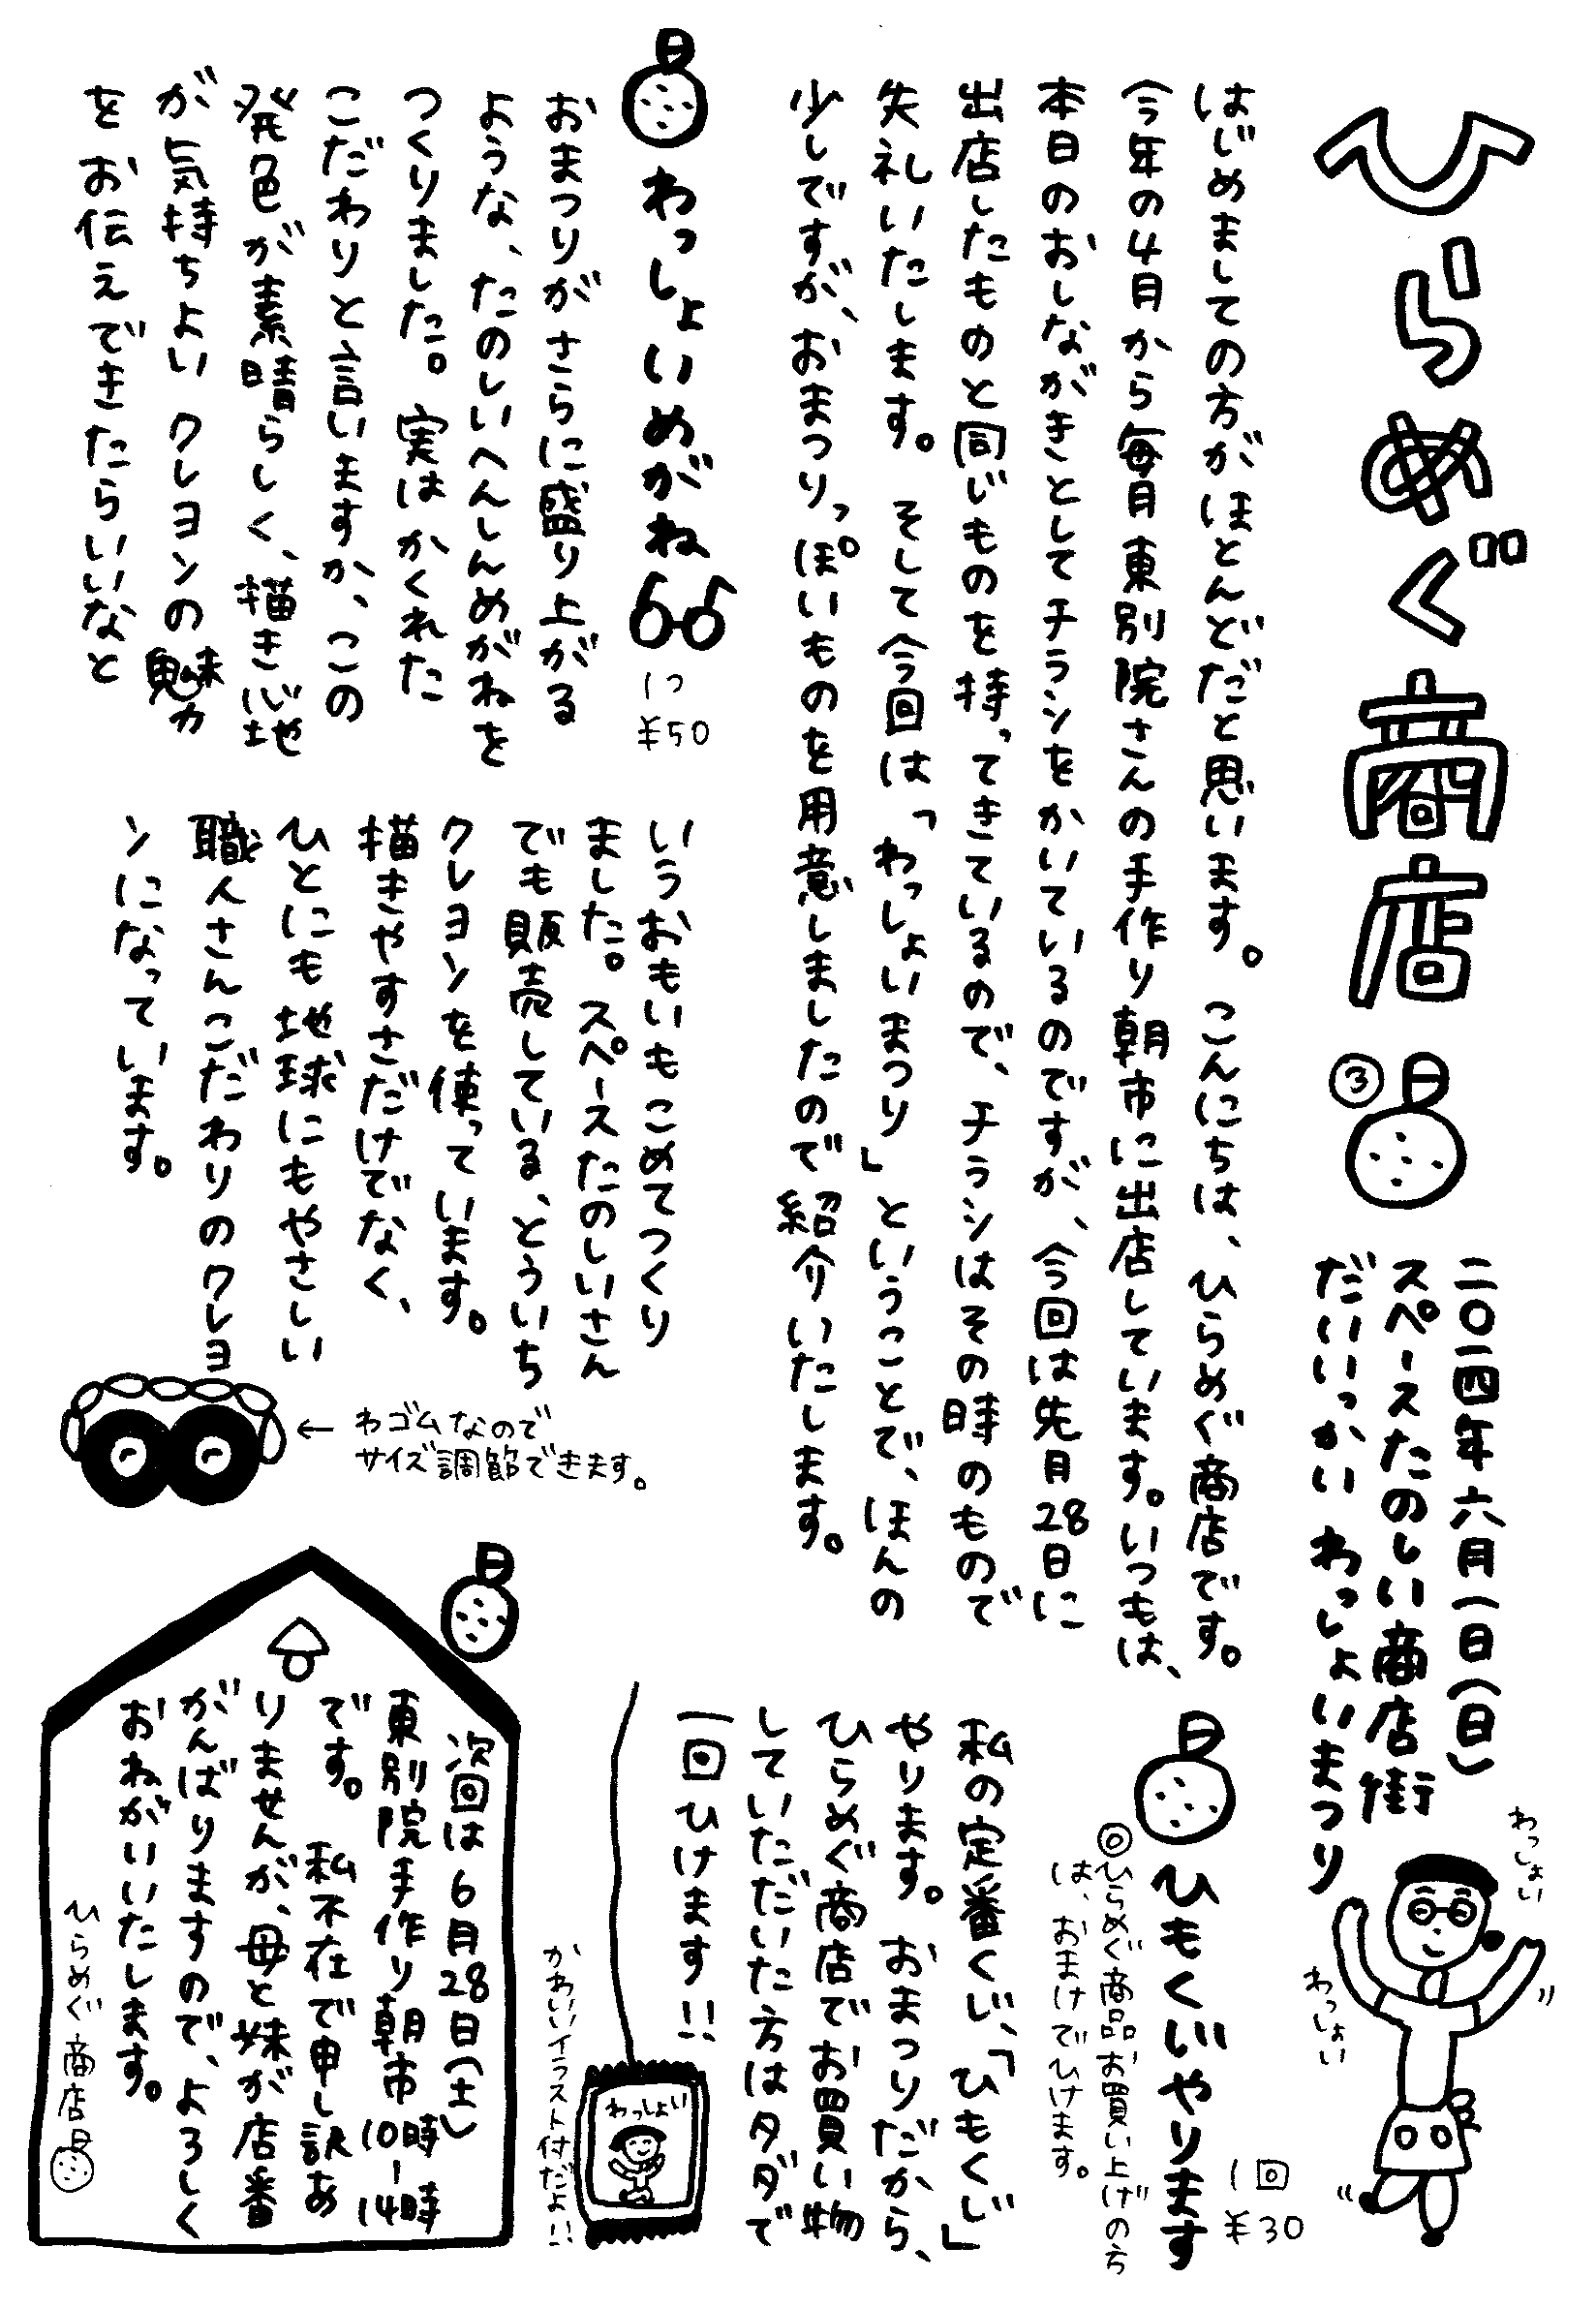 ひらめぐ商店
③
二〇一四年六月一日(日)
スペースたのしい商店街
だいいっかい わっしょいまつり
わっしょい
わっしょい
はじめましての方がほとんどだと思います。こんにちは、ひらめぐ商店です。
今年の4月から毎月東別院さんの手作り朝市に出店しています。いつもは、
本日のおしながきとしてチラシをかいているのですが、今回は先月28日に
出店したものと同じものを持ってきているので、チラシはその時のもので
失礼いたします。そして今回は「わっしょいまつり」ということで、ほんの
少しですが、おまつりっぽいものを用意しましたので紹介いたします。
わっしょいめがね
1つ
¥50
おまつりがさらに盛り上がる
ような、たのしいへんしんめがねを
つくりました。実はかくれた
こだわりと言いますか、この
発色が素晴らしく、描き心地
が気持ちよいクレヨンの魅力
をお伝えできたらいいなと
いうおもいもこめてつくり
ました。スペースたのしいさん
でも販売している、とういち
クレヨンを使っています。
描きやすさだけでなく、
ひとにも地球にもやさしい
職人さんこだわりのクレヨ
ンになっています。
← わゴムなので
サイズ調節できます。
ひもくじやります
1回
¥30
◎ひらめぐ商品お買い上げの方
は、おまけでひけます。
私の定番くじ、「ひもくじ」
やります。おまつりだから、
ひらめぐ商店でお買い物
していただいた方はタダで
一回ひけます!!
わっしょい
かわいいイラスト付だよ!!
次回は6月28日(土)
東別院手作り朝市10時-14時
です。私不在で申し訳あ
りませんが、母と妹が店番
がんばりますので、よろしく
おねがいいたします。
ひらめぐ商店